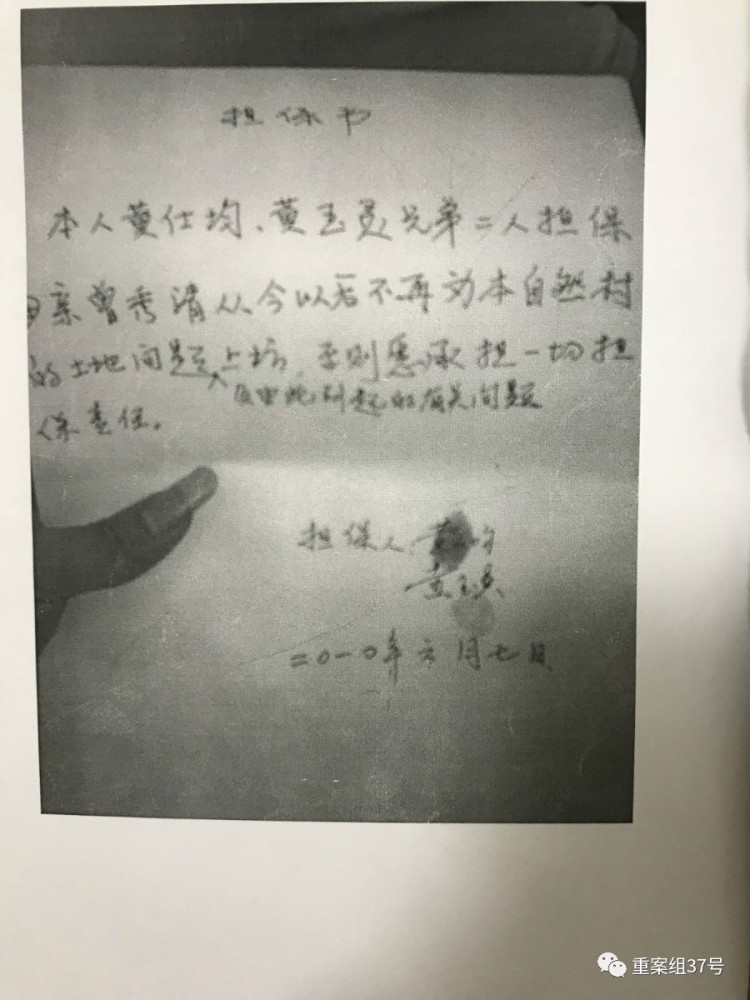 担保书
本人黄仕均、黄玉灵兄弟二人担保
母亲曾秀清从今以后不再为本自然村
的土地问题上访,否则愿承担一切担
及由此引起的有关问题
保责任。
担保人
黄玉灵
二〇一〇年六月七日
重案组37号